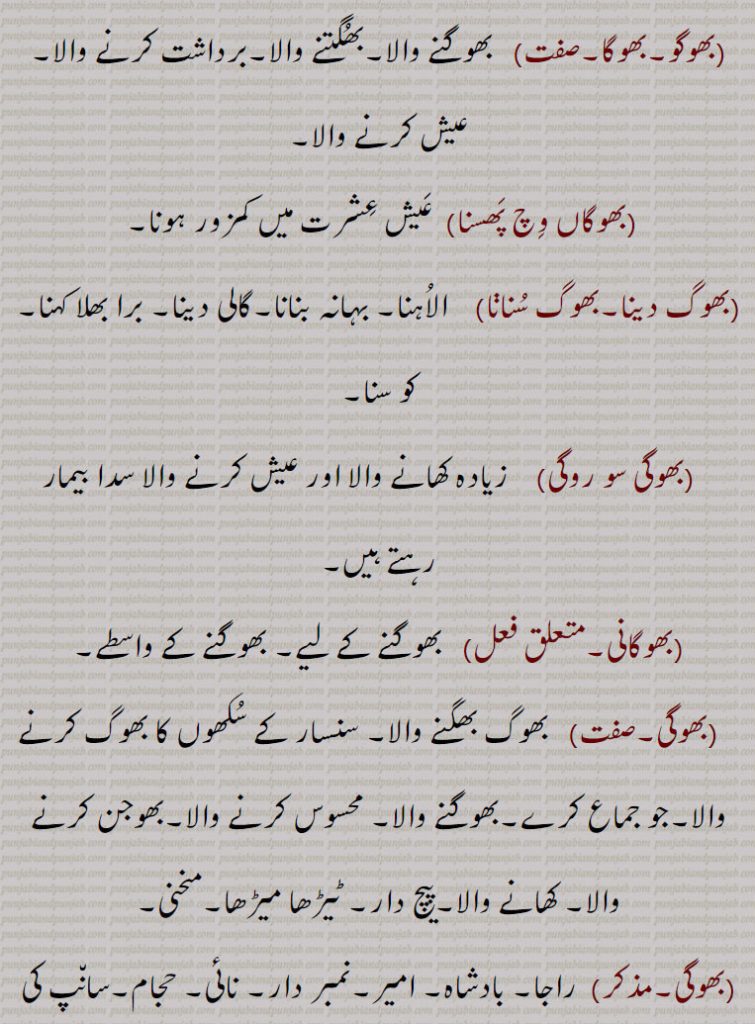 (بھوگو۔بھوگا۔صفت) بھوگنے والا۔بھُگتنے والا۔برداشت کرنے والا۔
عیش کرنے والا۔
(بھوگاں وِچ پَھسنا) عَیش عِشرت میں کمزور ہونا۔
(بھوگ دینا۔بھوگ سُنانْا) الاُہنا۔ بہانہ بنانا۔گالی دینا۔ برا بھلا کہنا۔
کو سنا۔
(بھوگی سو روگی) زیادہ کھانے والا اور عیش کرنے والا سدا بیمار
رہتے ہیں۔
(بھوگانی۔متعلق فعل) بھوگنے کے لیے۔ بھوگنے کے واسطے۔
(بھوگی۔صفت) بھوگ بھگنے والا۔ سنسار کے سُکھوں کا بھوگ کرنے
والا۔جو جماع کرے۔بھوگنے والا۔ محسوس کرنے والا۔بھوجن کرنے
والا۔ کھانے والا۔پیچ دار۔ ٹیڑھا میڑھا۔ منحنی۔
(بھوگی۔مذکر) راجا۔ بادشاہ۔ امیر۔نمبر دار۔ نائی۔ حجام۔سانپ کی